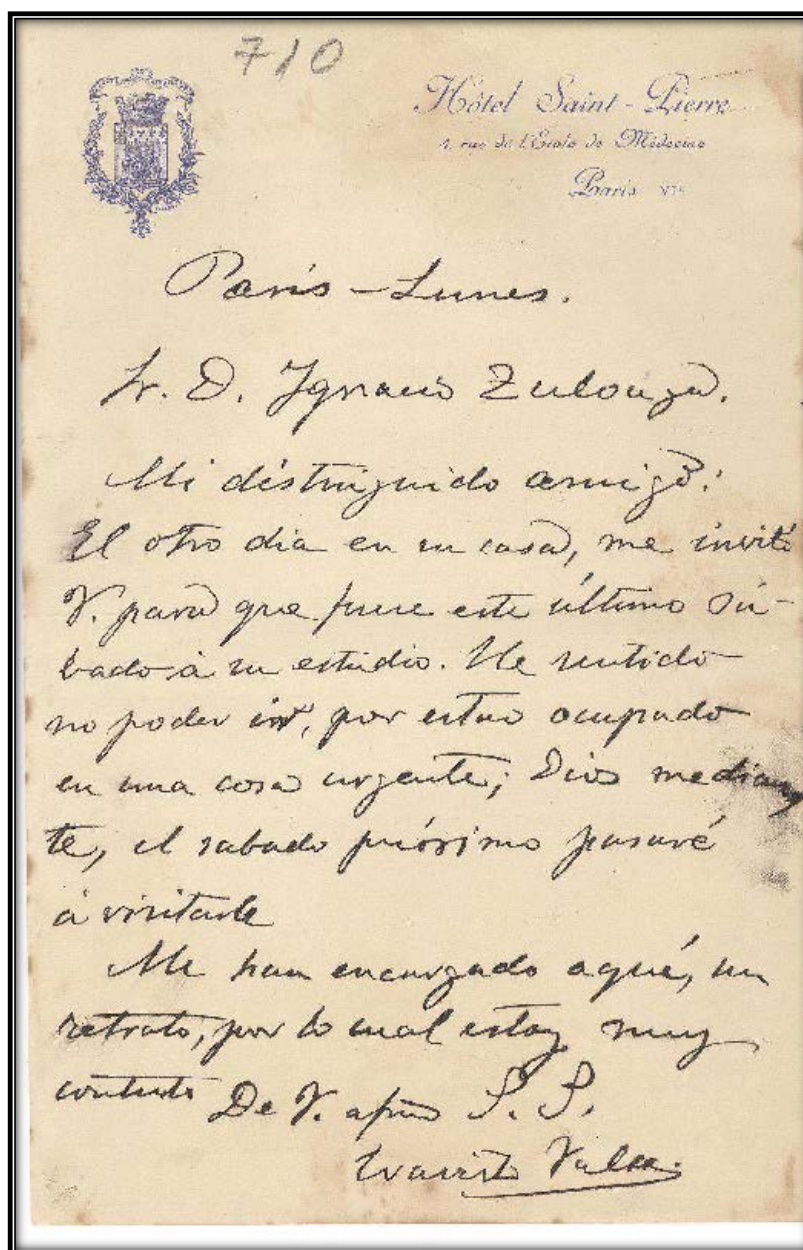 710
Hôtel Saint-Pierre
4, rue de l'École de Médecine
Paris VIe
Paris - Lunes.
Sr. D. Ignacio Zuloaga.
Mi distinguido amigo:
El otro dia en su casa, me invitó
V. para que fuese este último sá-
bado à su estudio. He sentido
no poder ir, por estar ocupado
en una cosa urgente; Dios median
te, el sabado próximo pasaré
à visitarle
Me han encargado aqui, un
retrato, por lo cual estoy muy
contento De V. afmo S. S.
Evaristo Valle